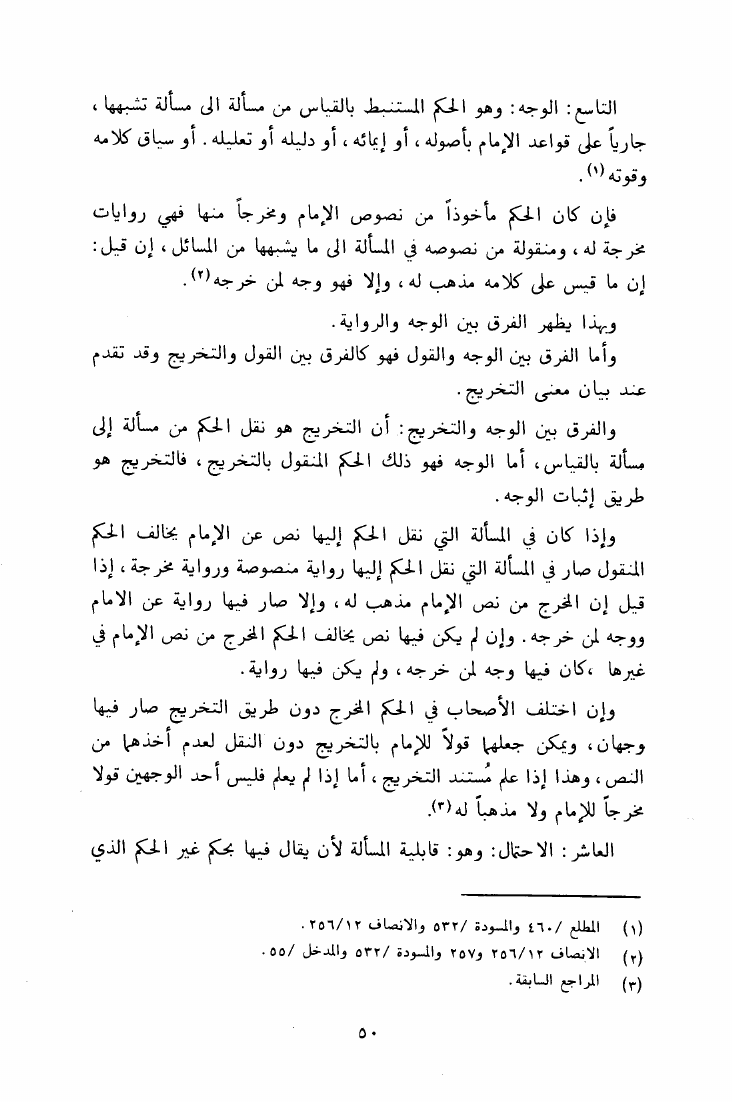 التاسع: الوجه: وهو الحكم المستنبط بالقياس من مسألة الى مسألة تشبهها،
جارياً على قواعد الإمام بأصوله، أو إيمائه، أو دليله أو تعليله. أو سياق كلامه
وقوته(١).
فإن كان الحكم مأخوذاً من نصوص الإمام ومخرجاً منها فهي روايات
مخرجة له، ومنقولة من نصوصه في المسألة الى ما يشبهها من المسائل، إن قيل:
إن ما قيس على كلامه مذهب له، وإلا فهو وجه لمن خرجه(٢).
وبهذا يظهر الفرق بين الوجه والرواية.
وأما الفرق بين الوجه والقول فهو كالفرق بين القول والتخريج وقد تقدم
عند بيان معنى التخريج.
والفرق بين الوجه والتخريج: أن التخريج هو نقل الحكم من مسألة إلى
مسألة بالقياس، أما الوجه فهو ذلك الحكم المنقول بالتخريج، فالتخريج هو
طريق إثبات الوجه.
وإذا كان في المسألة التي نقل الحكم إليها نص عن الإمام يخالف الحكم
المنقول صار في المسألة التي نقل الحكم إليها رواية منصوصة ورواية مخرجة، إذا
قيل إن المخرج من نص الإمام مذهب له، وإلا صار فيها رواية عن الامام
ووجه لمن خرجه. وإن لم يكن فيها نص يخالف الحكم المخرج من نص الإمام في
غيرها، كان فيها وجه لمن خرجه، ولم يكن فيها رواية.
وإن اختلف الأصحاب في الحكم المخرج دون طريق التخريج صار فيها
وجهان، ويمكن جعلهما قولاً للإمام بالتخريج دون النقل لعدم أخذهما من
النص، وهذا إذا علم مُستند التخريج، أما إذا لم يعلم فليس أحد الوجهين قولا
مخرجاً للإمام ولا مذهباً له(٣).
العاشر: الاحتمال: وهو: قابلية المسألة لأن يقال فيها بحكم غير الحكم الذي
(١) المطلع /٤٦٠ والمسودة /٥٣٢ والانصاف ٢٥٦/١٢.
(٢) الانصاف ٢٥٦/١٢ و٢٥٧ والمسودة /٥٣٢ والمدخل /٥٥.
(٣) المراجع السابقة.
٥٠